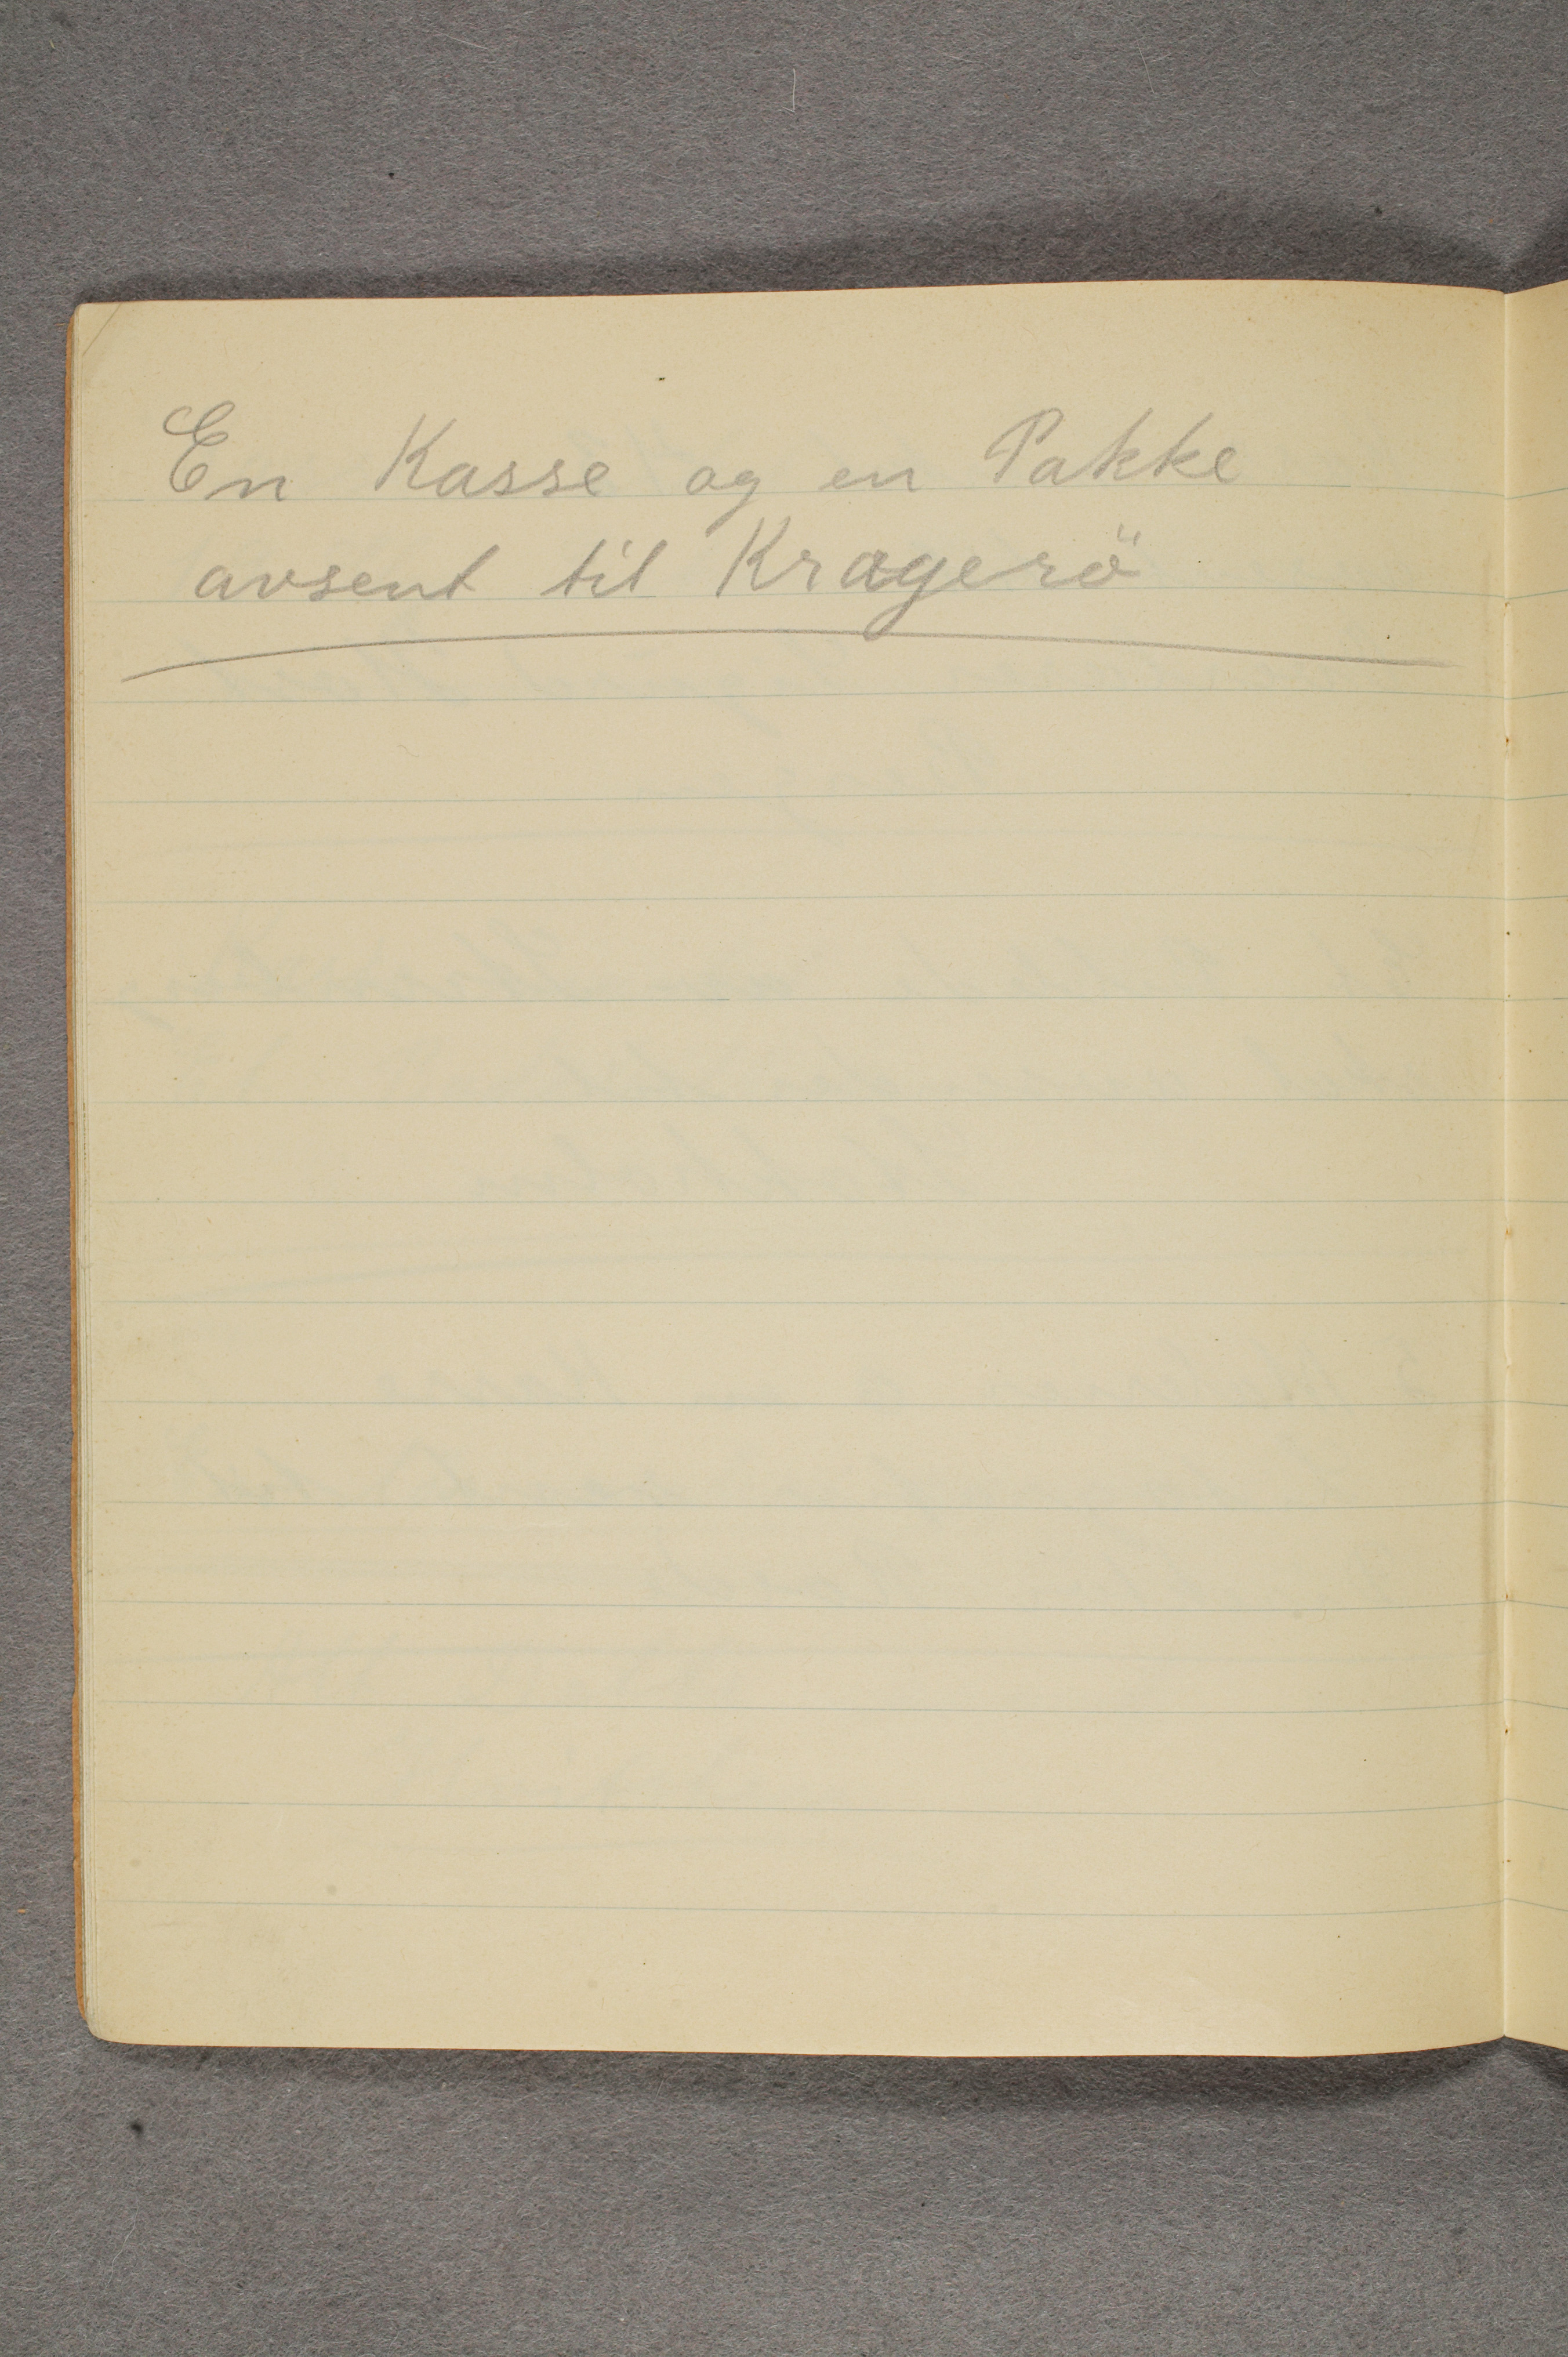 En Kasse og en Pakke
avsent til Kragerö